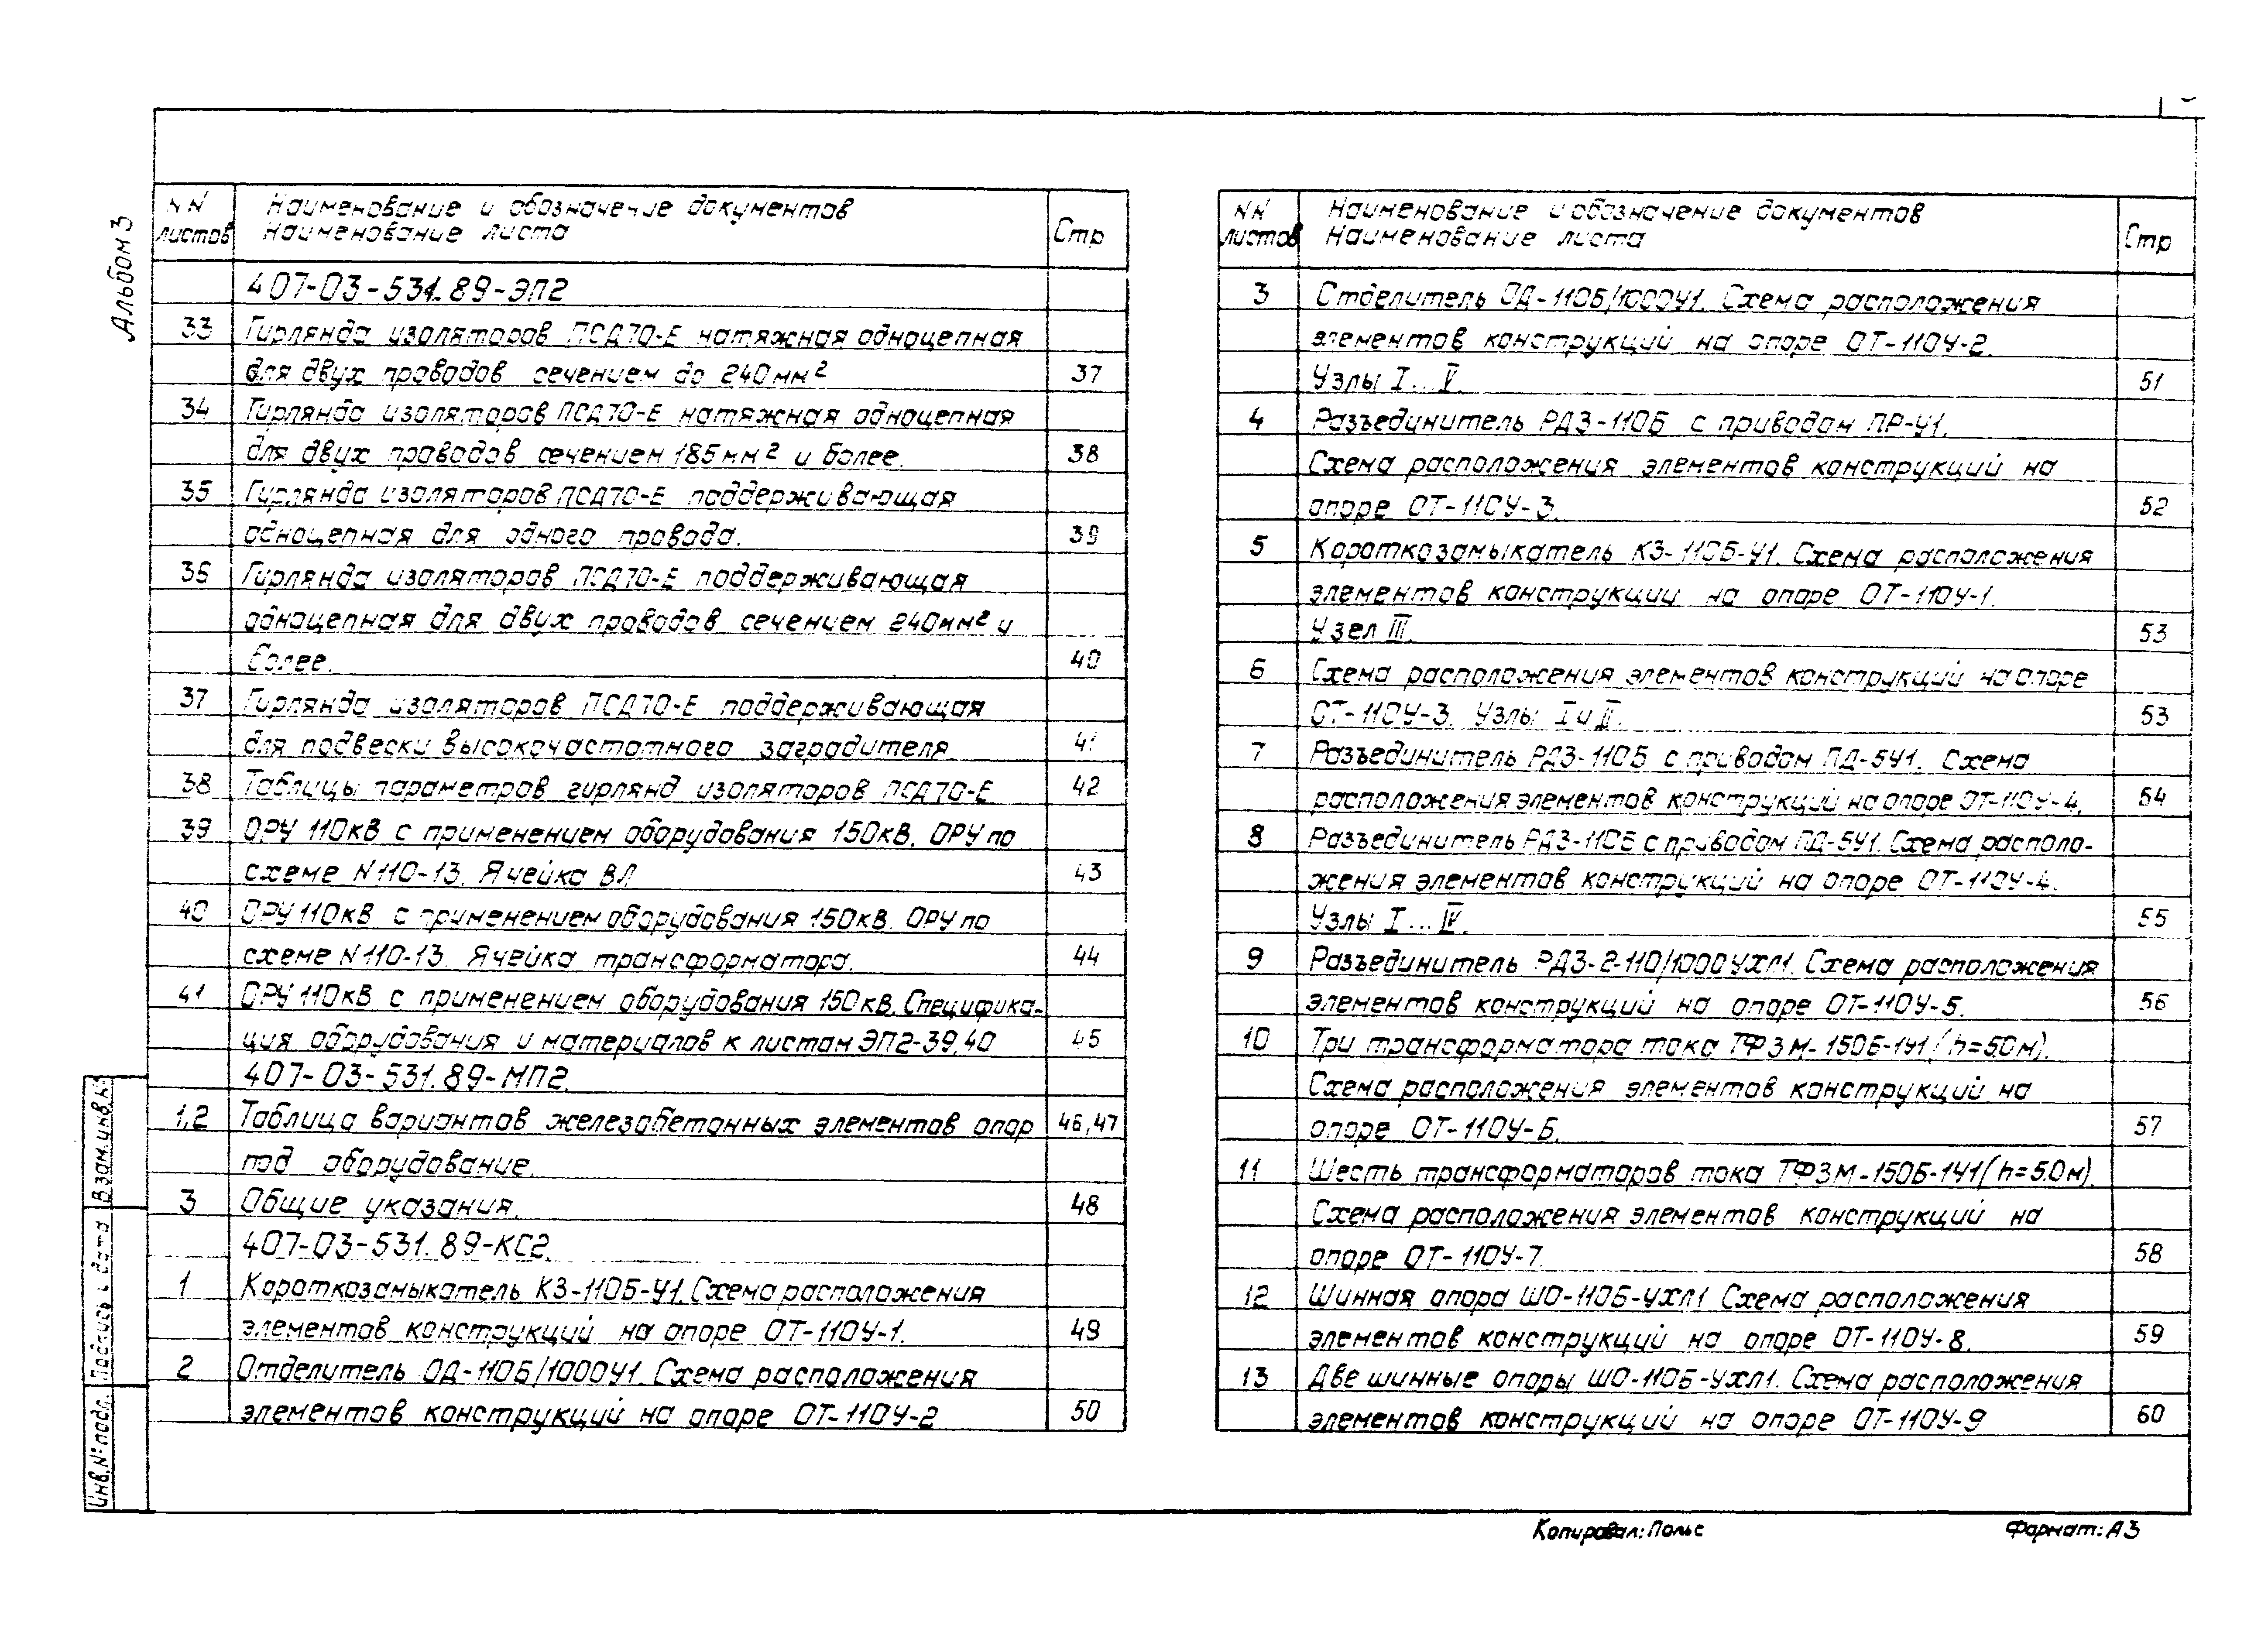 Альбом 3
NN листов
Наименование и обозначение документов
Наименование листа
Стр
407-03-531.89-ЭП2
33 Гирлянда изоляторов ПСД70-Е натяжная одноцепная
для двух проводов сечением до 240мм² 37
34 Гирлянда изоляторов ПСД70-Е натяжная одноцепная
для двух проводов сечением 185мм² и более. 38
35 Гирлянда изоляторов ПСД70-Е поддерживающая
одноцепная для одного провода. 39
36 Гирлянда изоляторов ПСД70-Е поддерживающая
одноцепная для двух проводов сечением 240мм² и
более. 40
37 Гирлянда изоляторов ПСД70-Е поддерживающая
для подвески высокочастотного заградителя. 41
38 Таблицы параметров гирлянд изоляторов ПСД70-Е. 42
39 ОРУ 110кВ с применением оборудования 150кВ. ОРУ по
схеме N110-13. Ячейка ВЛ 43
40 ОРУ 110кВ с применением оборудования 150кВ. ОРУ по
схеме N110-13. Ячейка трансформатора. 44
41 ОРУ 110кВ с применением оборудования 150кВ. Специфика-
ция оборудования и материалов к листам ЭП2-39,40 45
407-03-531.89-МП2.
1,2 Таблица вариантов железобетонных элементов опор 46,47
под оборудование.
3 Общие указания. 48
407-03-531.89-КС2.
1 Короткозамыкатель КЗ-110Б-У1. Схема расположения
элементов конструкций на опоре ОТ-110У-1. 49
2 Отделитель ОД-110Б/1000У1. Схема расположения
элементов конструкций на опоре ОТ-110У-2 50
NN листов
Наименование и обозначение документов
Наименование листа
Стр
3 Отделитель ОД-110Б/1000У1. Схема расположения
элементов конструкций на опоре ОТ-110У-2.
Узлы I...V. 51
4 Разъединитель РДЗ-110Б с приводом ПР-У1.
Схема расположения элементов конструкций на
опоре ОТ-110У-3. 52
5 Короткозамыкатель КЗ-110Б-У1. Схема расположения
элементов конструкции на опоре ОТ-110У-1.
Узел III. 53
6 Схема расположения элементов конструкций на опоре
ОТ-110У-3. Узлы I и II. 53
7 Разъединитель РДЗ-110Б с приводом ПД-5У1. Схема
расположения элементов конструкций на опоре ОТ-110У-4. 54
8 Разъединитель РДЗ-110Б с приводом ПД-5У1. Схема располо-
жения элементов конструкций на опоре ОТ-110У-4.
Узлы I...IV. 55
9 Разъединитель РДЗ-2-110/1000УХЛ1. Схема расположения
элементов конструкций на опоре ОТ-110У-5. 56
10 Три трансформатора тока ТФЗМ-150Б-1У1 (h=5.0м).
Схема расположения элементов конструкций на
опоре ОТ-110У-6. 57
11 Шесть трансформаторов тока ТФЗМ-150Б-1У1 (h=5.0м).
Схема расположения элементов конструкций на
опоре ОТ-110У-7. 58
12 Шинная опора ШО-110Б-УХЛ1 Схема расположения
элементов конструкций на опоре ОТ-110У-8. 59
13 Две шинные опоры ШО-110Б-УХЛ1. Схема расположения
элементов конструкций на опоре ОТ-110У-9 60
Взам.инв.№
Подпись и дата
Инв.№ подл.
Копировал: Польс
Формат: А3